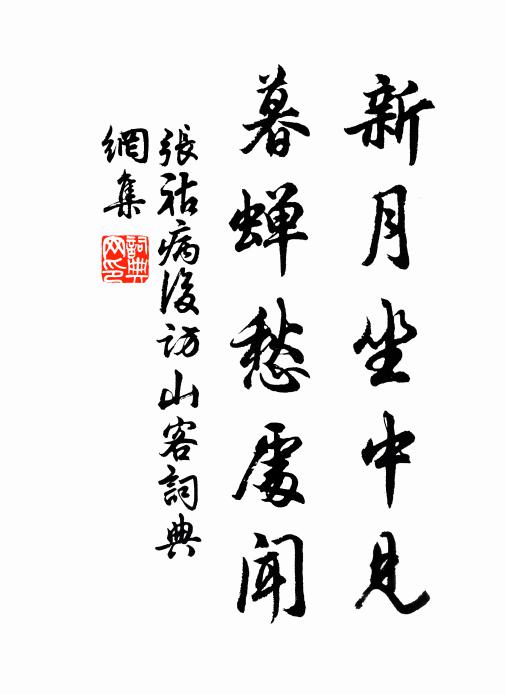 新月坐中见
暮蝉愁處闻
張祜病後访山客詞典
網集
詞典
网印